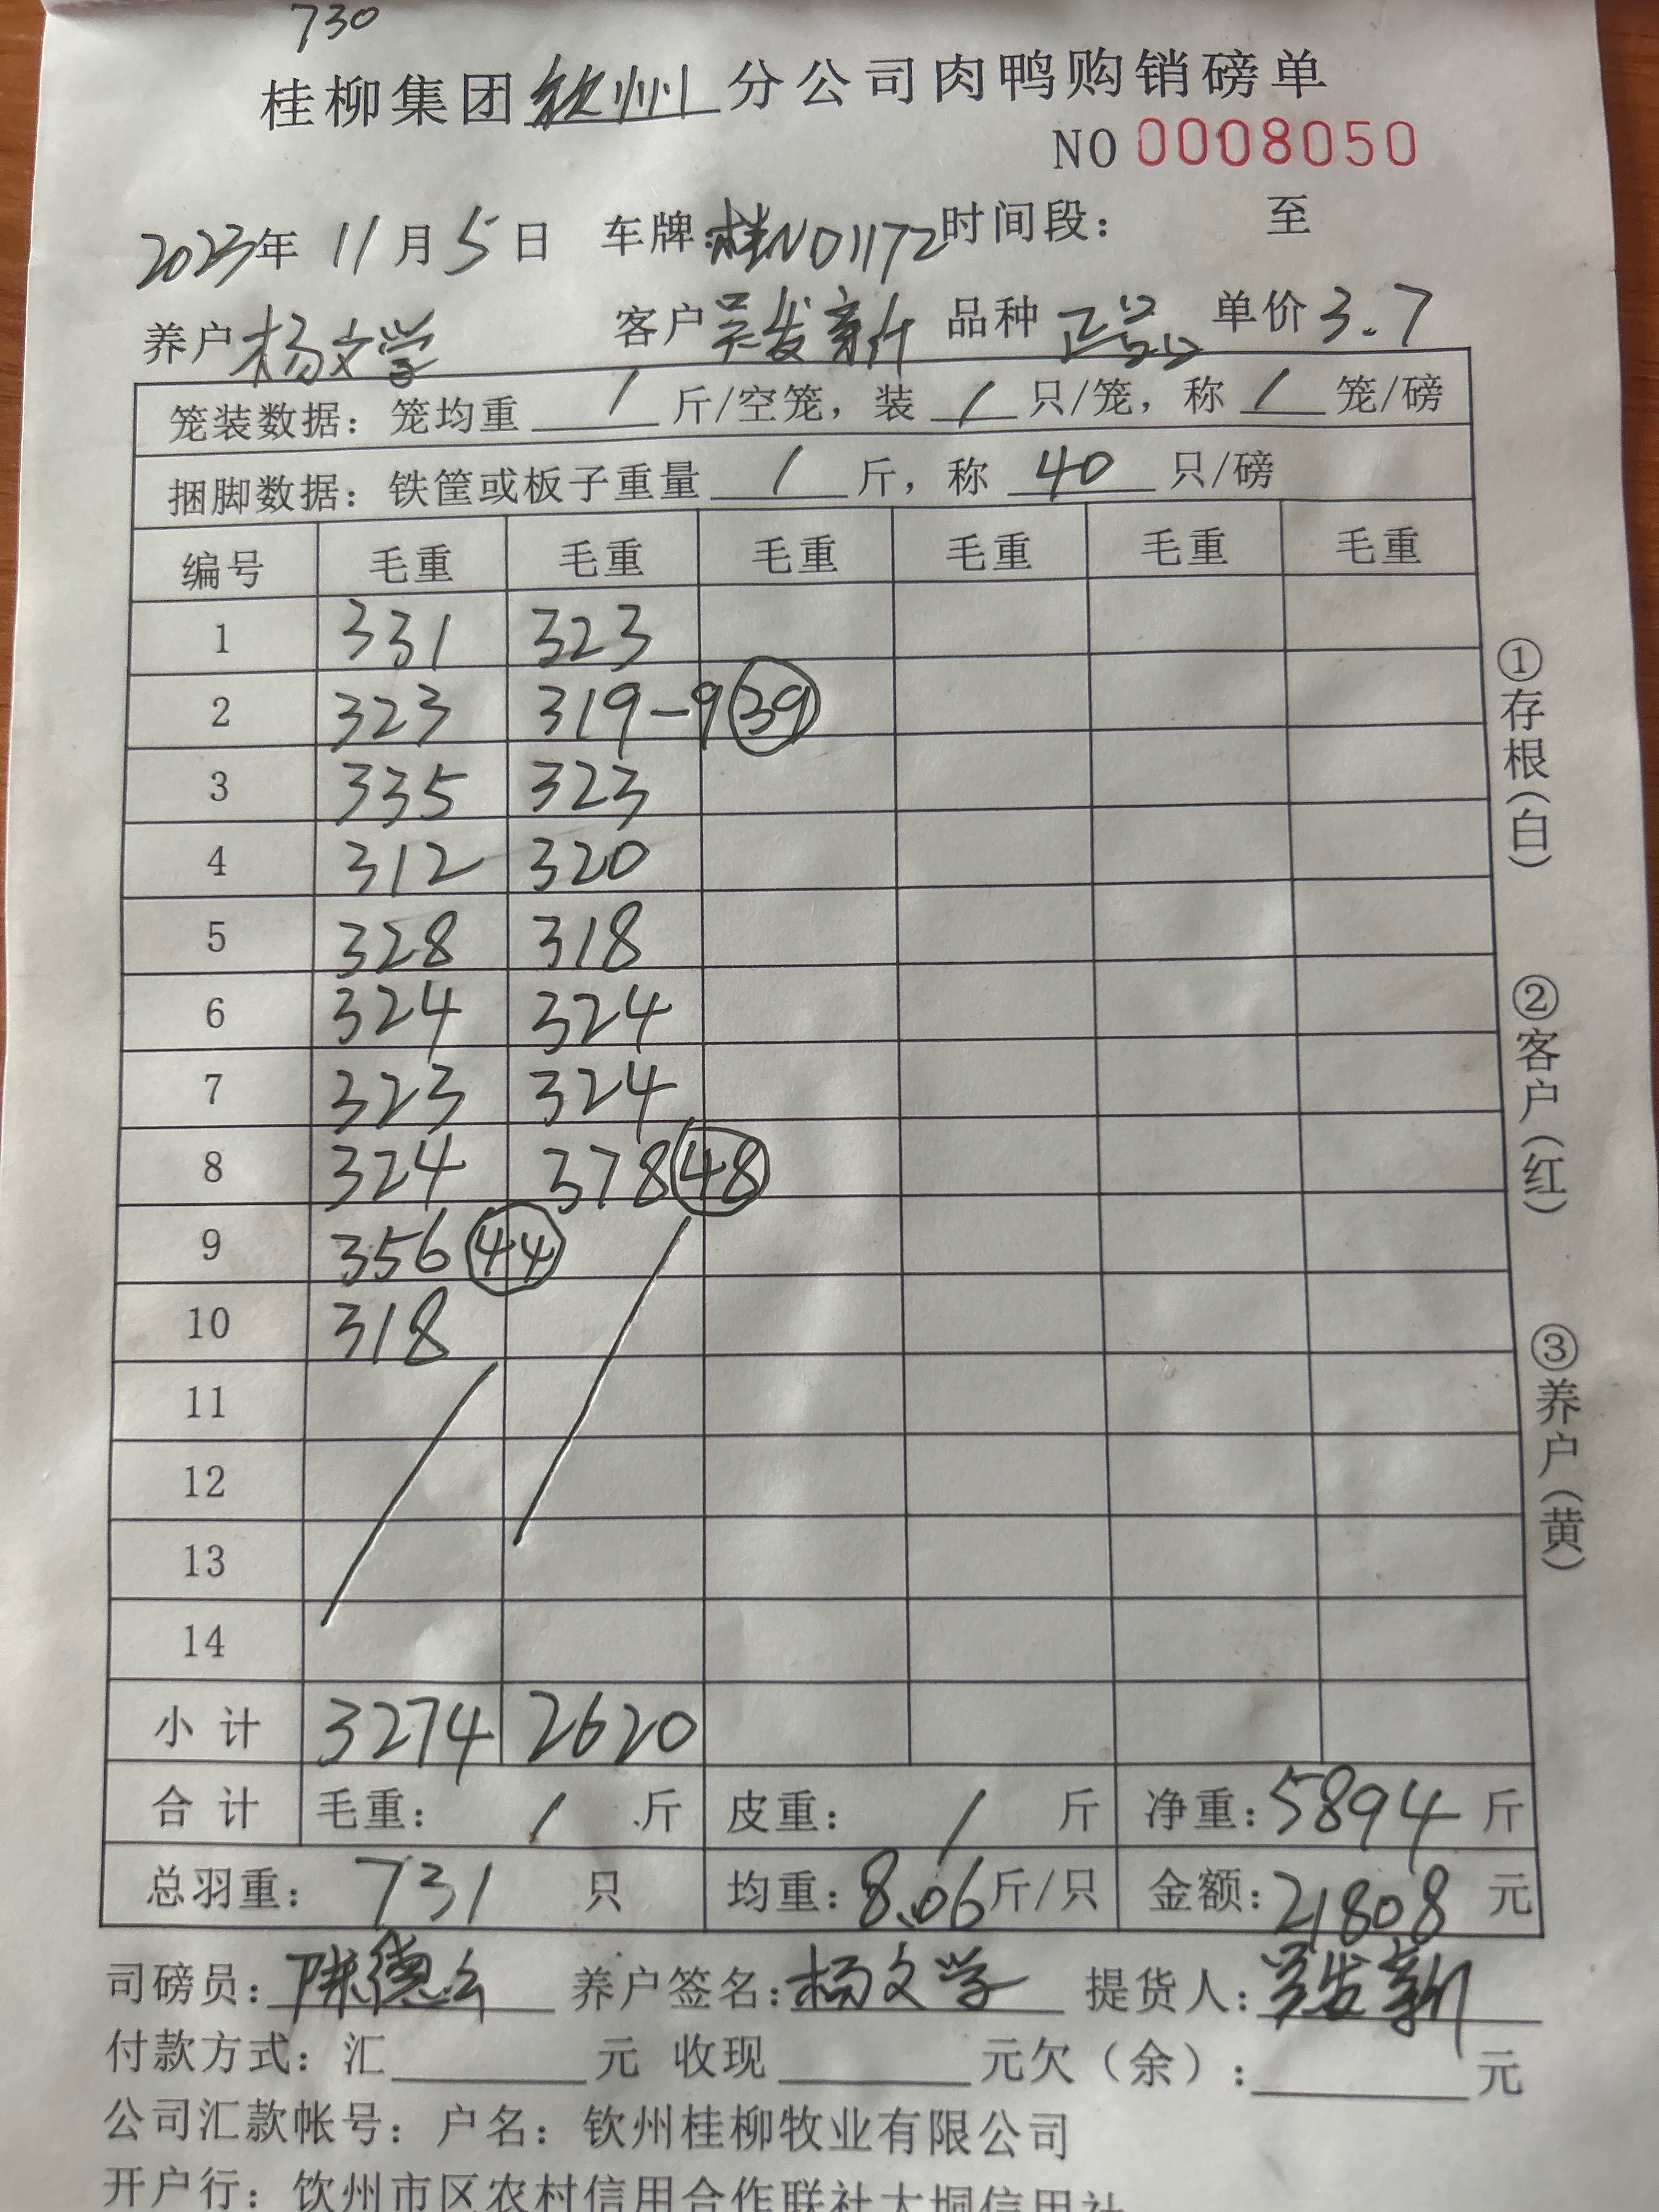 730
桂柳集团钦州分公司肉鸭购销磅单
NO 0008050
2023年 11月 5日 车牌:桂N01172 时间段： 至
养户 杨文学 客户 吴发新 品种 正品 单价 3.7
笼装数据：笼均重 / 斤/空笼，装 / 只/笼，称 / 笼/磅
捆脚数据：铁筐或板子重量 / 斤，称 40 只/磅
编号 毛重 毛重 毛重 毛重 毛重 毛重
1 331 323
2 323 319-9 39
3 335 323
4 312 320
5 328 318
6 324 324
7 323 324
8 324 378 48
9 356 44
10 318
11
12
13
14
小计 3274 2620
合计 毛重： / 斤 皮重： / 斤 净重：5894 斤
总羽重： 731 只 均重：8.06斤/只 金额：21808 元
司磅员：陈德 养户签名：杨文学 提货人：吴发新
付款方式：汇 元 收现 元欠（余）： 元
公司汇款帐号：户名：钦州桂柳牧业有限公司
开户行：钦州市区农村信用合作联社大垌信用社
①存根（白）
②客户（红）
③养户（黄）